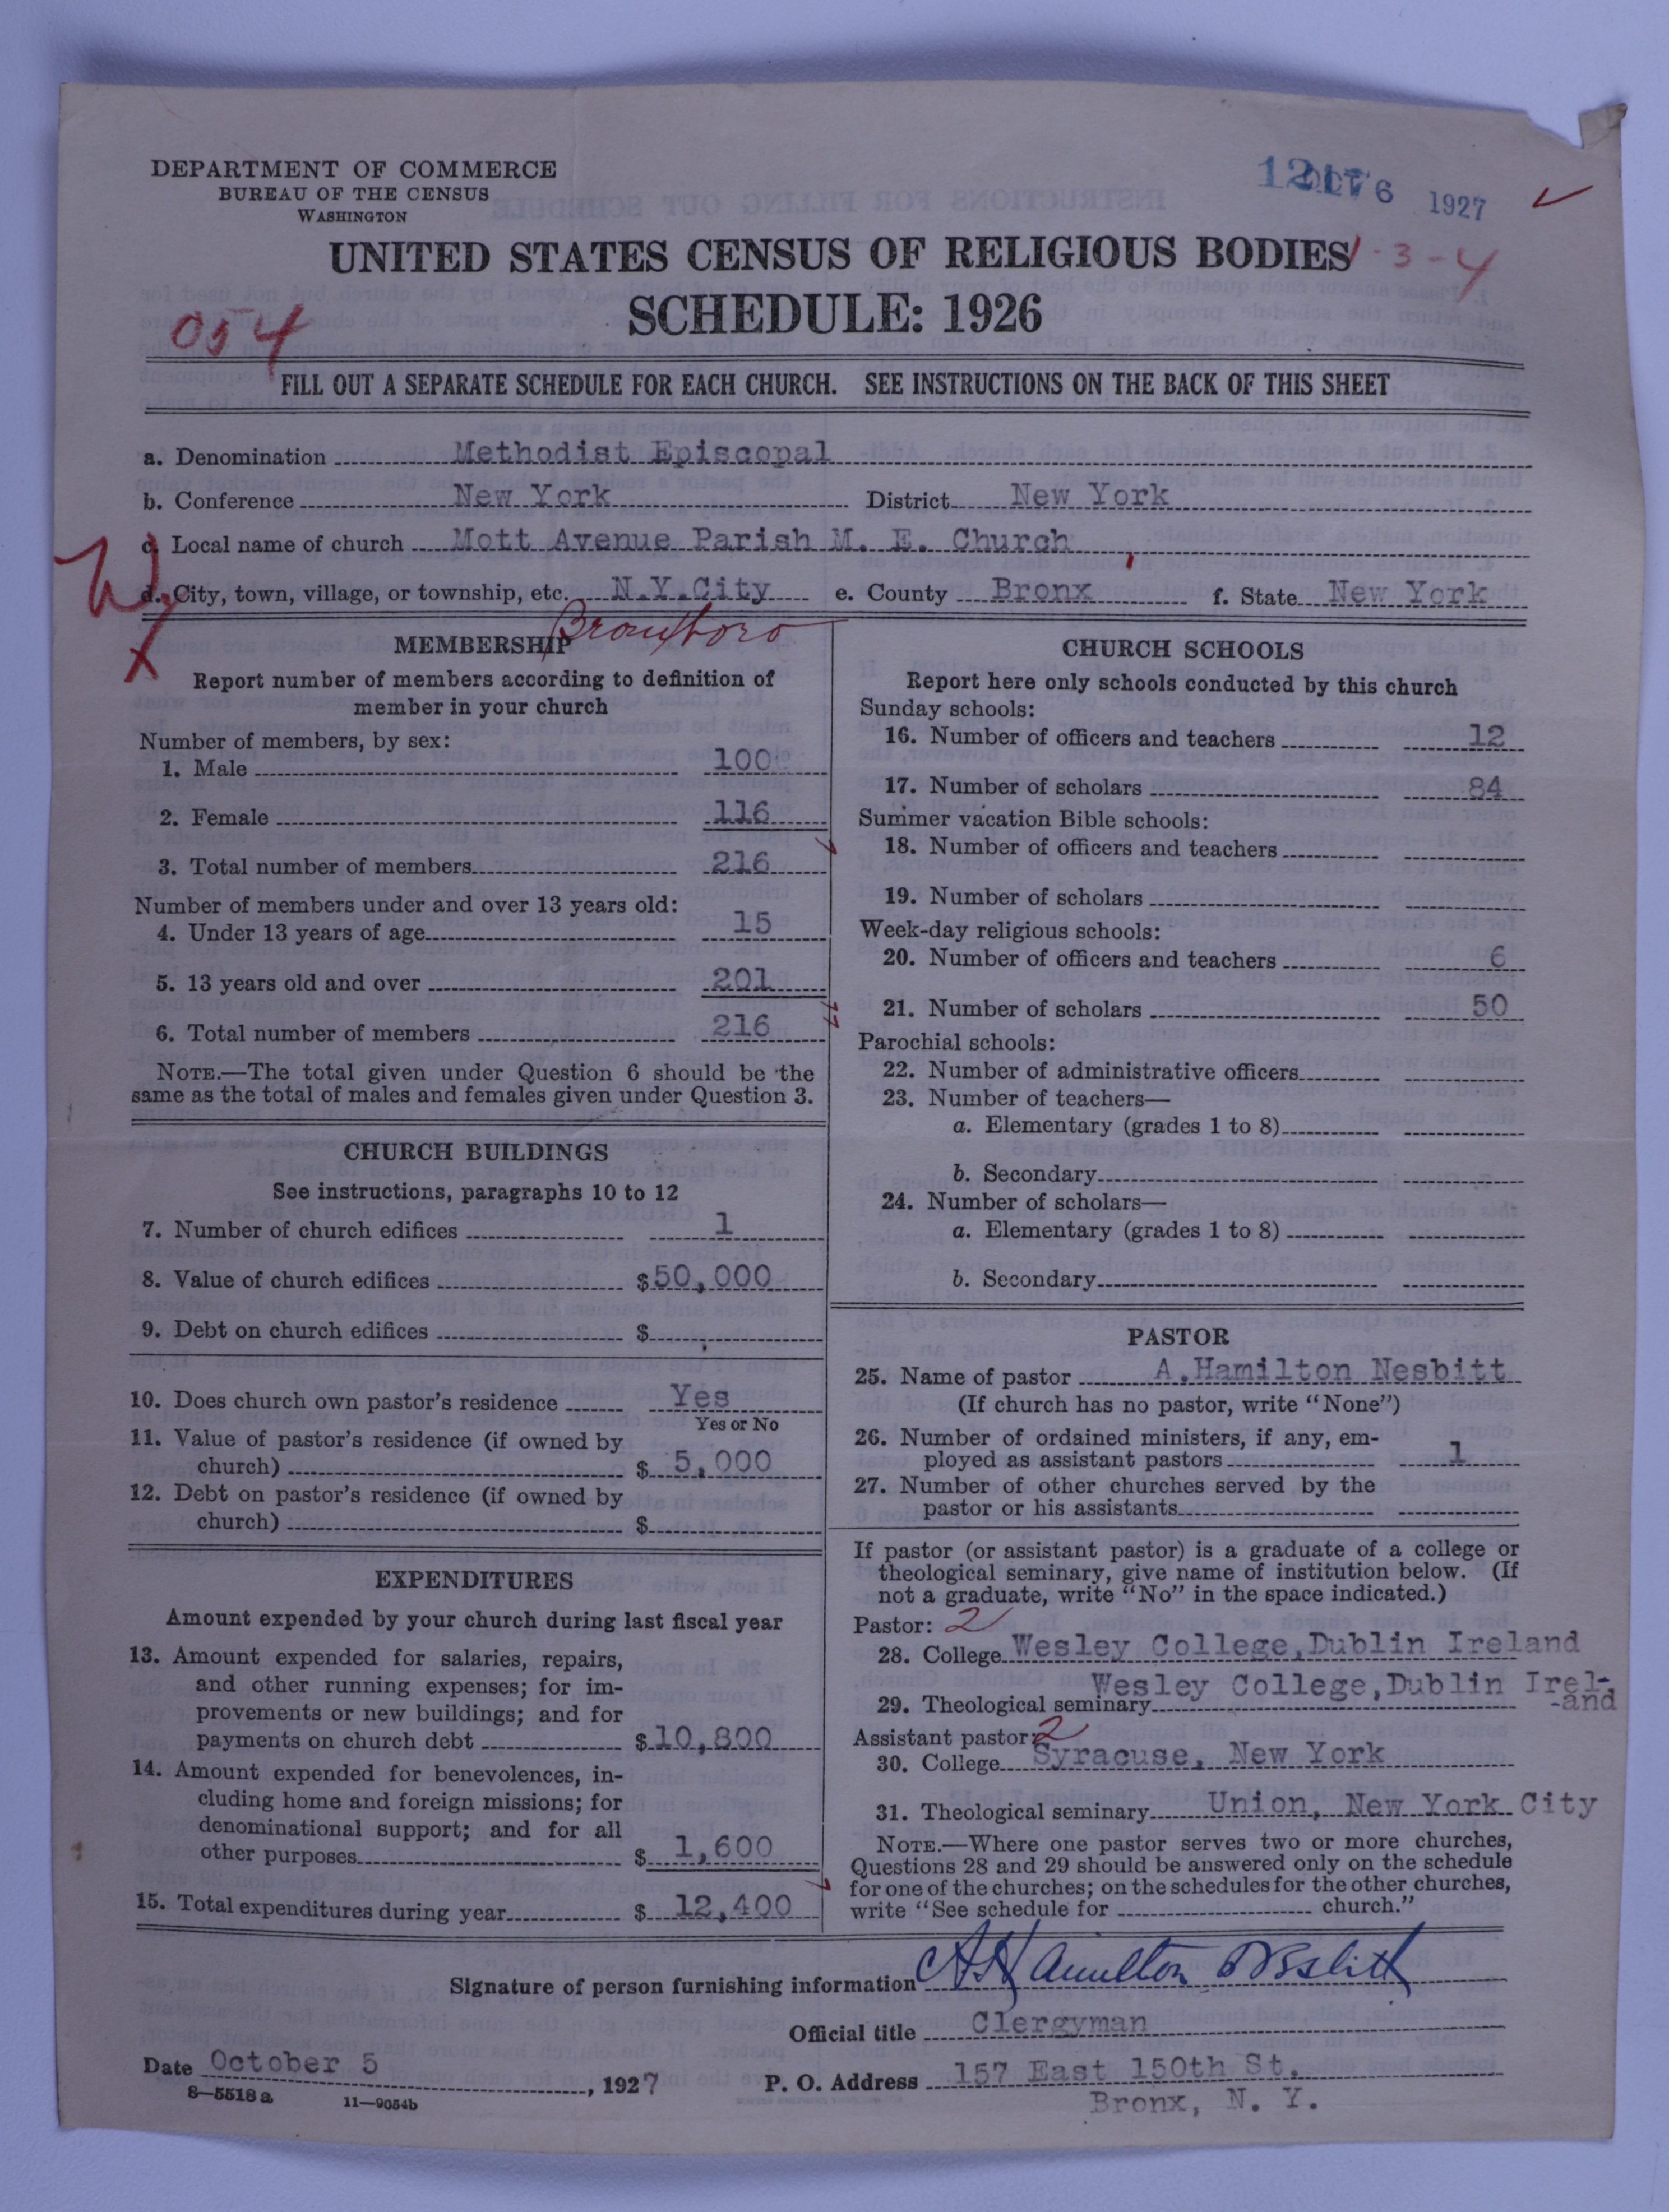 DEPARTMENT OF COMMERCE
BUREAU OF THE CENSUS
WASHINGTON
OCT 6 1927
UNITED STATES CENSUS OF RELIGIOUS BODIES
1-3-4
SCHEDULE: 1926
054
FILL OUT A SEPARATE SCHEDULE FOR EACH CHURCH. SEE INSTRUCTIONS ON THE BACK OF THIS SHEET
a. Denomination Methodist Episcopal
b. Conference New York District New York
c. Local name of church Mott Avenue Parish M. E. Church
d. City, town, village, or township, etc. N.Y.City e. County Bronx f. State New York
W
X
Bronx boro
MEMBERSHIP
Report number of members according to definition of
member in your church
Number of members, by sex:
1. Male 100
2. Female 116
3. Total number of members 216
Number of members under and over 13 years old:
4. Under 13 years of age 15
5. 13 years old and over 201
6. Total number of members 216
NOTE.—The total given under Question 6 should be the
same as the total of males and females given under Question 3.
CHURCH BUILDINGS
See instructions, paragraphs 10 to 12
7. Number of church edifices 1
8. Value of church edifices $50,000
9. Debt on church edifices $
10. Does church own pastor's residence Yes
Yes or No
11. Value of pastor's residence (if owned by
church) $ 5,000
12. Debt on pastor's residence (if owned by
church) $
EXPENDITURES
Amount expended by your church during last fiscal year
13. Amount expended for salaries, repairs,
and other running expenses; for im-
provements or new buildings; and for
payments on church debt $10,800
14. Amount expended for benevolences, in-
cluding home and foreign missions; for
denominational support; and for all
other purposes $ 1,600
15. Total expenditures during year $ 12,400
CHURCH SCHOOLS
Report here only schools conducted by this church
Sunday schools:
16. Number of officers and teachers 12
17. Number of scholars 84
Summer vacation Bible schools:
18. Number of officers and teachers
19. Number of scholars
Week-day religious schools:
20. Number of officers and teachers 6
21. Number of scholars 50
Parochial schools:
22. Number of administrative officers
23. Number of teachers—
a. Elementary (grades 1 to 8)
b. Secondary
24. Number of scholars—
a. Elementary (grades 1 to 8)
b. Secondary
PASTOR
25. Name of pastor A.Hamilton Nesbitt
(If church has no pastor, write "None")
26. Number of ordained ministers, if any, em-
ployed as assistant pastors 1
27. Number of other churches served by the
pastor or his assistants
If pastor (or assistant pastor) is a graduate of a college or
theological seminary, give name of institution below. (If
not a graduate, write "No" in the space indicated.)
Pastor: 2
28. College Wesley College,Dublin Ireland
29. Theological seminary Wesley College,Dublin Irel-
-and
Assistant pastor: 2
30. College Syracuse, New York
31. Theological seminary Union, New York City
NOTE.—Where one pastor serves two or more churches,
Questions 28 and 29 should be answered only on the schedule
for one of the churches; on the schedules for the other churches,
write "See schedule for church."
Signature of person furnishing information A Hamilton Nesbitt
Official title Clergyman
Date October 5, 1927 P. O. Address 157 East 150th St.
Bronx, N. Y.
8—5518a 11—9054b